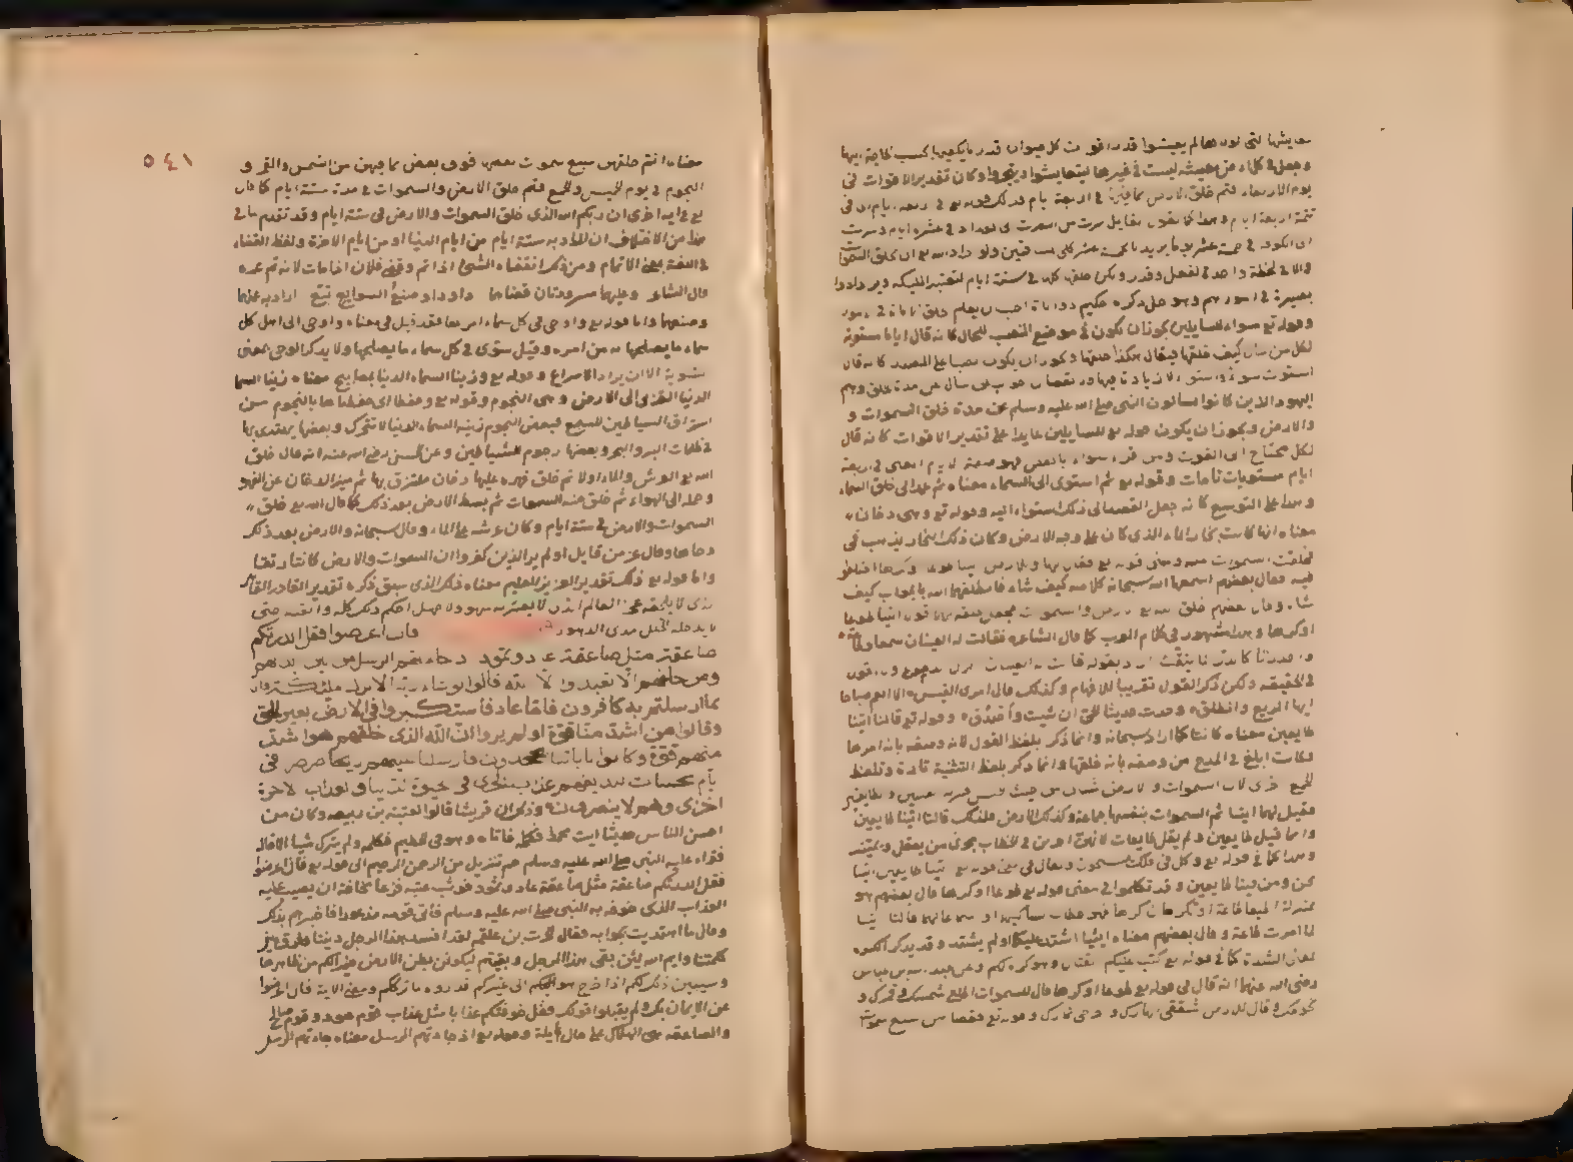 معايشها التى لولاها لم يعيشوا قدر اقوات كل حيوان قدر ما يكفيها بحسب الحاجة اليها
وجعل فى كل ارض معيشة ليست فى غيرها ليتعايشوا ويتجروا وكان تقدير الاقوات فى
يوم الاربعاء فتم خلق الارض بما فيها فى اربعة ايام فذلك قوله تع فى اربعة ايام اى فى
تتمة اربعة ايام وهذا كما يقول القايل سرت من البصرة الى بغداد فى عشرة ايام وسرت
الى الكوفة فى خمسة عشر يوما يريد بالخمسة عشر كلى المسافتين ولو اراد الله تع ان يخلق السموات
والارض فى لحظة واحدة لفعل وقدر ولكن خلقها كلها فى ستة ايام لتعتبر المليكة ويزدادوا
بصيرة فى امورهم وهو جل ذكره حكيم ذو اناة احب ان يعلم خلقه الاناة فى الامور
وقوله تع سواء للسايلين يجوز ان يكون فى موضع النصب للحال كانه قال اياما مستوية
لكل من سال كيف خلقها فيقال هكذا خلقها ويجوز ان يكون نصبا على المصدر كانه قال
استوت سواء واستواء لا زيادة فيها ولا نقصان جوابا لمن سال عن مدة خلق وهم
اليهود الذين كانوا يسالون النبى صلى الله عليه وسلم عن مدة خلق السموات و
والارض ويجوز ان يكون قوله تع للسايلين عايدا على تقدير الاقوات كانه قال
لكل محتاج الى القوت ومن قرا سواء بالخفض فهو صفة لايام المعنى فى اربعة
ايام مستويات تامات وقوله تع ثم استوى الى السماء معناه ثم عمد الى خلق السماء
وهذا على التوسع كانه جعل القصد الى ذلك استواء اليه وقوله تع وهى دخان
معناه انها كانت بخار الماء الذى كان على وجه الارض وكان ذلك البخار يذهب فى
فخلقت السموات منه ومعنى قوله تع فقال لها وللارض ايتيا طوعا او كرها اختلفوا
فيه فقال بعضهم اسمعها الله سبحانه كلامه كيف شاء فانطقهما الله بالجواب كيف
شاء وقال بعضهم خلق الله تع الارض والسموات فجعل خلقه لهما قوله ايتيا طوعا
او كرها وهذا مشهور فى كلام العرب كما قال الشاعر فقالت له العينان سمعا وطاعة
وحدرتا كالدر لما يثقب اراد بقوله قالت له العينان
فى الحقيقة ولكن ذكر القول تقريبا للافهام وكذلك قال امرئ القيس الا انعم صباحا
ايها الربع وانطق وحدث حديث الحى ان شيت واصدق وقوله تع قالتا اتينا
طايعين معناه كانتا كما اراد سبحانه وانما ذكر بلفظ القول لانه وصفه بانه امرها
فكانت ابلغ فى المدح من وصفه بانه خلقها وانما ذكر بلفظ التثنية تارة وبلفظ
الجمع اخرى لان السموات والارض شيان من حيث
فقيل لهما ايتيا ثم السموات بنفسها جماعة وكذلك الارض فلذلك قالتا اتينا طايعين
وانما قيل طايعين ولم يقل طايعات لانهن اجرين فى الخطاب مجرى من يعقل ويميز
وهذا كما فى قوله تع وكل فى فلك يسبحون ويقال فى معنى قوله تع اتينا طايعين اتينا
نحن ومن فينا طايعين وقد تكلموا فى معنى قوله تع طوعا او كرها قال بعضهم هو
لما امرت طاعة وقال بعضهم معناه ايتيا اشتد عليكما او لم يشتد وقد يذكر الكره
بمعنى الشدة كما فى قوله تع كتب عليكم القتال وهو كره لكم وعن عبد الله بن عباس
رضى الله عنهما انه قال فى قوله تع طوعا او كرها قال للسموات اطلع شمسك وقمرك و
نجومك وقال للارض شققى انهارك واخرجى ثمارك وقوله تع فقضاهن سبع سموات
٥٤١
معناه اتم خلقهن سبع سموات بعضها فوق بعض بما فيهن من الشمس والقمر و
النجوم فى يوم الخميس والجمع فتم خلق الارض والسموات فى مدة ستة ايام كما قال
تع فى اية اخرى ان ربكم الله الذى خلق السموات والارض فى ستة ايام وقد تقدم ما فى
هذا من الاختلاف ان المراد به ستة ايام من ايام الدنيا او من ايام الاخرة ولفظ القضاء
فى اللغة بمعنى الاتمام ومن ذكر انقضاء الشىء اذا تم وقضى فلان اذا مات لانه تم عمره
قال الشاعر وعليهما مسرودتان قضاهما داود او صنع السوابغ تبع اراد به عملهما
وصنعهما واما قوله تع واوحى فى كل سماء امرها فقد قيل فى معناه واوحى الى اهل كل
سماء ما يصلحها من امره وقيل سوى فى كل سماء ما يصلحها ولا يذكر الوحى بمعنى
تسوية الا ان يراد الاسراع وقوله تع وزينا السماء الدنيا بمصابيح معناه زينا السما
الدنيا القربى الى الارض وهى النجوم وقوله تع وحفظا اى حفظناها بالنجوم من
استراق الشياطين للسمع فبعض النجوم زينة السماء الدنيا لا تتحرك وبعضها يهتدى بها
فى ظلمات البر والبحر وبعضها رجوم للشياطين وعن الحسن رضى الله عنه انه قال خلق
الله تع العرش والماء اولا ثم خلق فهره عليها دخان ملتزق بها ثم ميز الدخان عن الفهر
وحمله الى الهواء ثم خلق منه السموات ثم بسط الارض بعد ذلك كما قال الله تع خلق
السموات والارض فى ستة ايام وكان عرشه على الماء وقال سبحانه والارض بعد ذلك
دحاها وقال عز من قايل اولم ير الذين كفروا ان السموات والارض كانتا رتقا
واما قوله تع ذلك تقدير العزيز العليم معناه ذلك الذى سبق ذكره تقدير القادر القاهر
الذى لا يلحقه عجز العالم الذى لا يعتريه سهو ولا جهل احكم ذلك كله واتقنه حتى
لا يدخله الخلل مدى الدهور فان اعرضوا فقل انذرتكم
صاعقة مثل صاعقة عاد وثمود اذ جاءتهم الرسل من بين ايديهم
ومن خلفهم الا تعبدوا الا الله قالوا لو شاء ربنا لانزل مليكة فانا
بما ارسلتم به كافرون فاما عاد فاستكبروا فى الارض بغير الحق
وقالوا من اشد منا قوة اولم يروا ان الله الذى خلقهم هو اشد
منهم قوة وكانوا باياتنا يجحدون فارسلنا عليهم ريحا صرصرا فى
ايام نحسات لنذيقهم عذاب الخزى فى الحيوة الدنيا ولعذاب الاخرة
اخزى وهم لا ينصرون وذكر ان قريشا قالوا لعتبة بن ربيعه وكان من
احسن الناس حديثا ايت محمد فكلمه فاتاه وهو فى الحطيم فكلمه ولم يترك شيا الا قاله
فقراء عليه النبى صلى الله عليه وسلم حم تنزيل من الرحمن الرحيم الى قوله تع فان اعرضوا
فقل انذرتكم صاعقة مثل صاعقة عاد وثمود فوثب عتبة فزعا مخافة ان يصيبه
العذاب الذى خوفه به النبى صلى الله عليه وسلم فاتى قومه مذعورا فاخبرهم بذلك
وقال ما اهتديت بجوابه فقال الحرث بن علقمه لقد افسد هذا الرجل ديننا وفرق
كلمتنا وايم الله لين بقى هذا الرجل وبقيتم ليكونن بطن الارض خيرا لكم من ظاهرها
وسيبين ذلك لكم اذا خرج هو الى غيركم قد روه ما ترككم ومعنى الاية فان اعرضوا
عن الايمان بك ولم يقبلوا قولك فقل خوفتكم عذابا مثل عذاب قوم هود وقوم صالح
والصاعقه هى الهلاك على حال هايلة وقوله تع اذ جاءتهم الرسل معناه جاءتهم الرسل